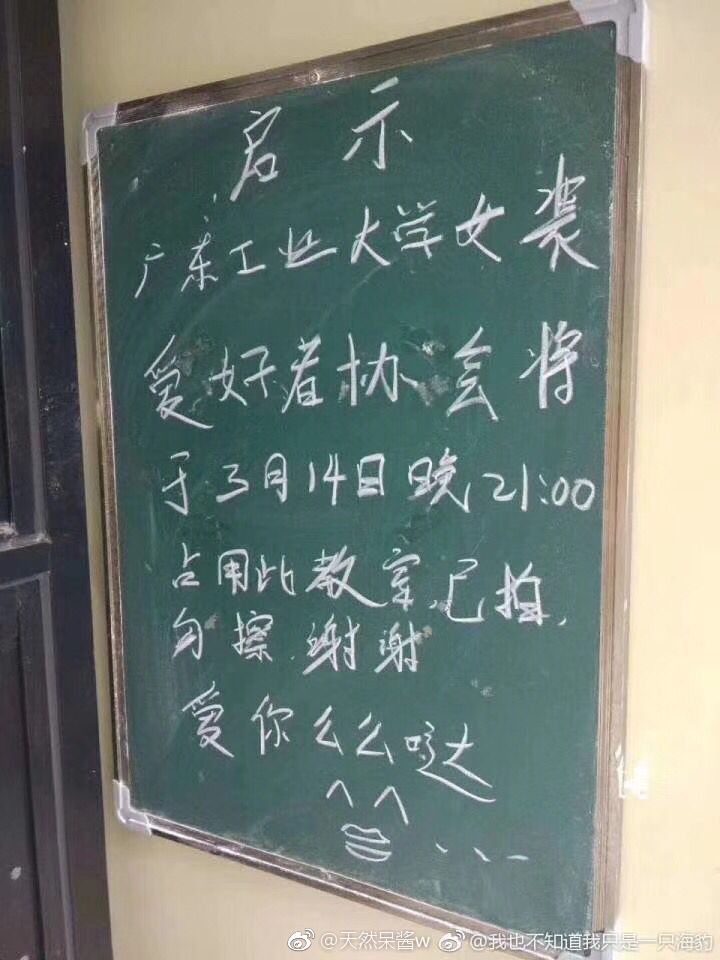 启示
广东工业大学女装
爱好者协会将
于3月14日晚21:00
占用此教室,已拍,
勿擦,谢谢
爱你么么哒
^ ^
@天然呆酱w @我也不知道我只是一只海豹